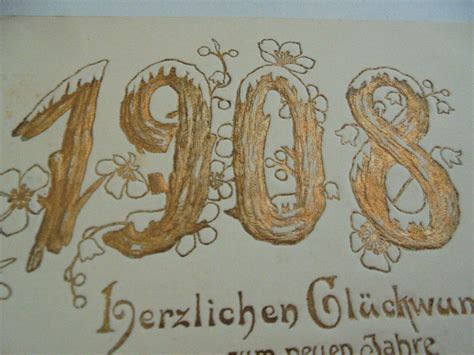 1908
Herzlichen Glückwun
zum neuen Jahre